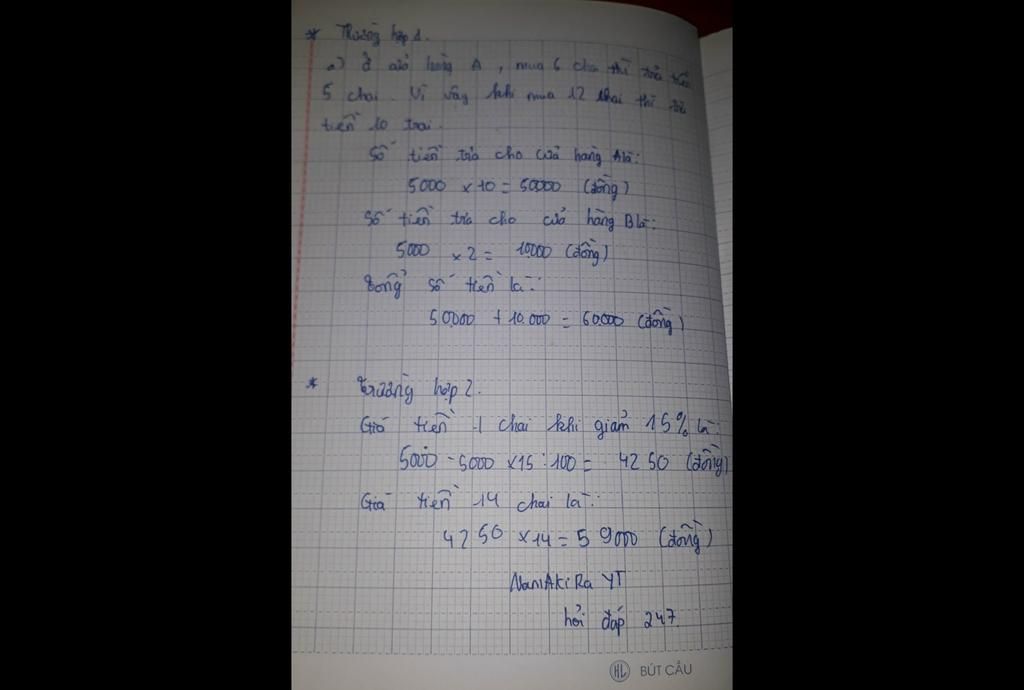 * Trường hợp 1.
a) ở cửa hàng A, mua 6 chai thì trả tiền
5 chai. Vì vậy khi mua 12 chai thì trả
tiền 10 trai.
Số tiền trả cho cửa hàng A là:
5000 x 10 = 50000 (đồng)
Số tiền trả cho cửa hàng B là:
5000 x 2 = 10000 (đồng)
Tổng số tiền là:
50.000 + 10.000 = 60.000 (đồng)
* Trường hợp 2.
Giá tiền 1 chai khi giảm 15% là:
5000 - 5000 x 15 : 100 = 4250 (đồng)
Giá tiền 14 chai là:
4250 x 14 = 59000 (đồng)
NaniAkiRa YT
hỏi đáp 247.
HL BÚT CẦU